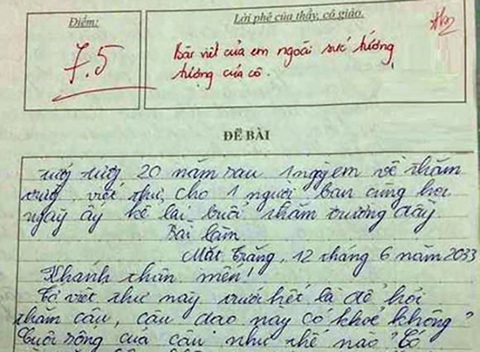 Điểm:
7.5
Lời phê của thầy, cô giáo.
Bài viết của em ngoài sức tưởng
tượng của cô.
ĐỀ BÀI
20 năm sau 1 ngày em về thăm
viết thư cho 1 người bạn cùng học
ngày ấy kể lại buổi thăm trường đầy
Bài làm
Mặt Trăng, 12 tháng 6 năm 2033
Khanh thân mến!
Tớ viết thư này trước hết là để hỏi
thăm cậu, cậu dạo này có khoẻ không?
Cuộc sống của cậu như thế nào? Có